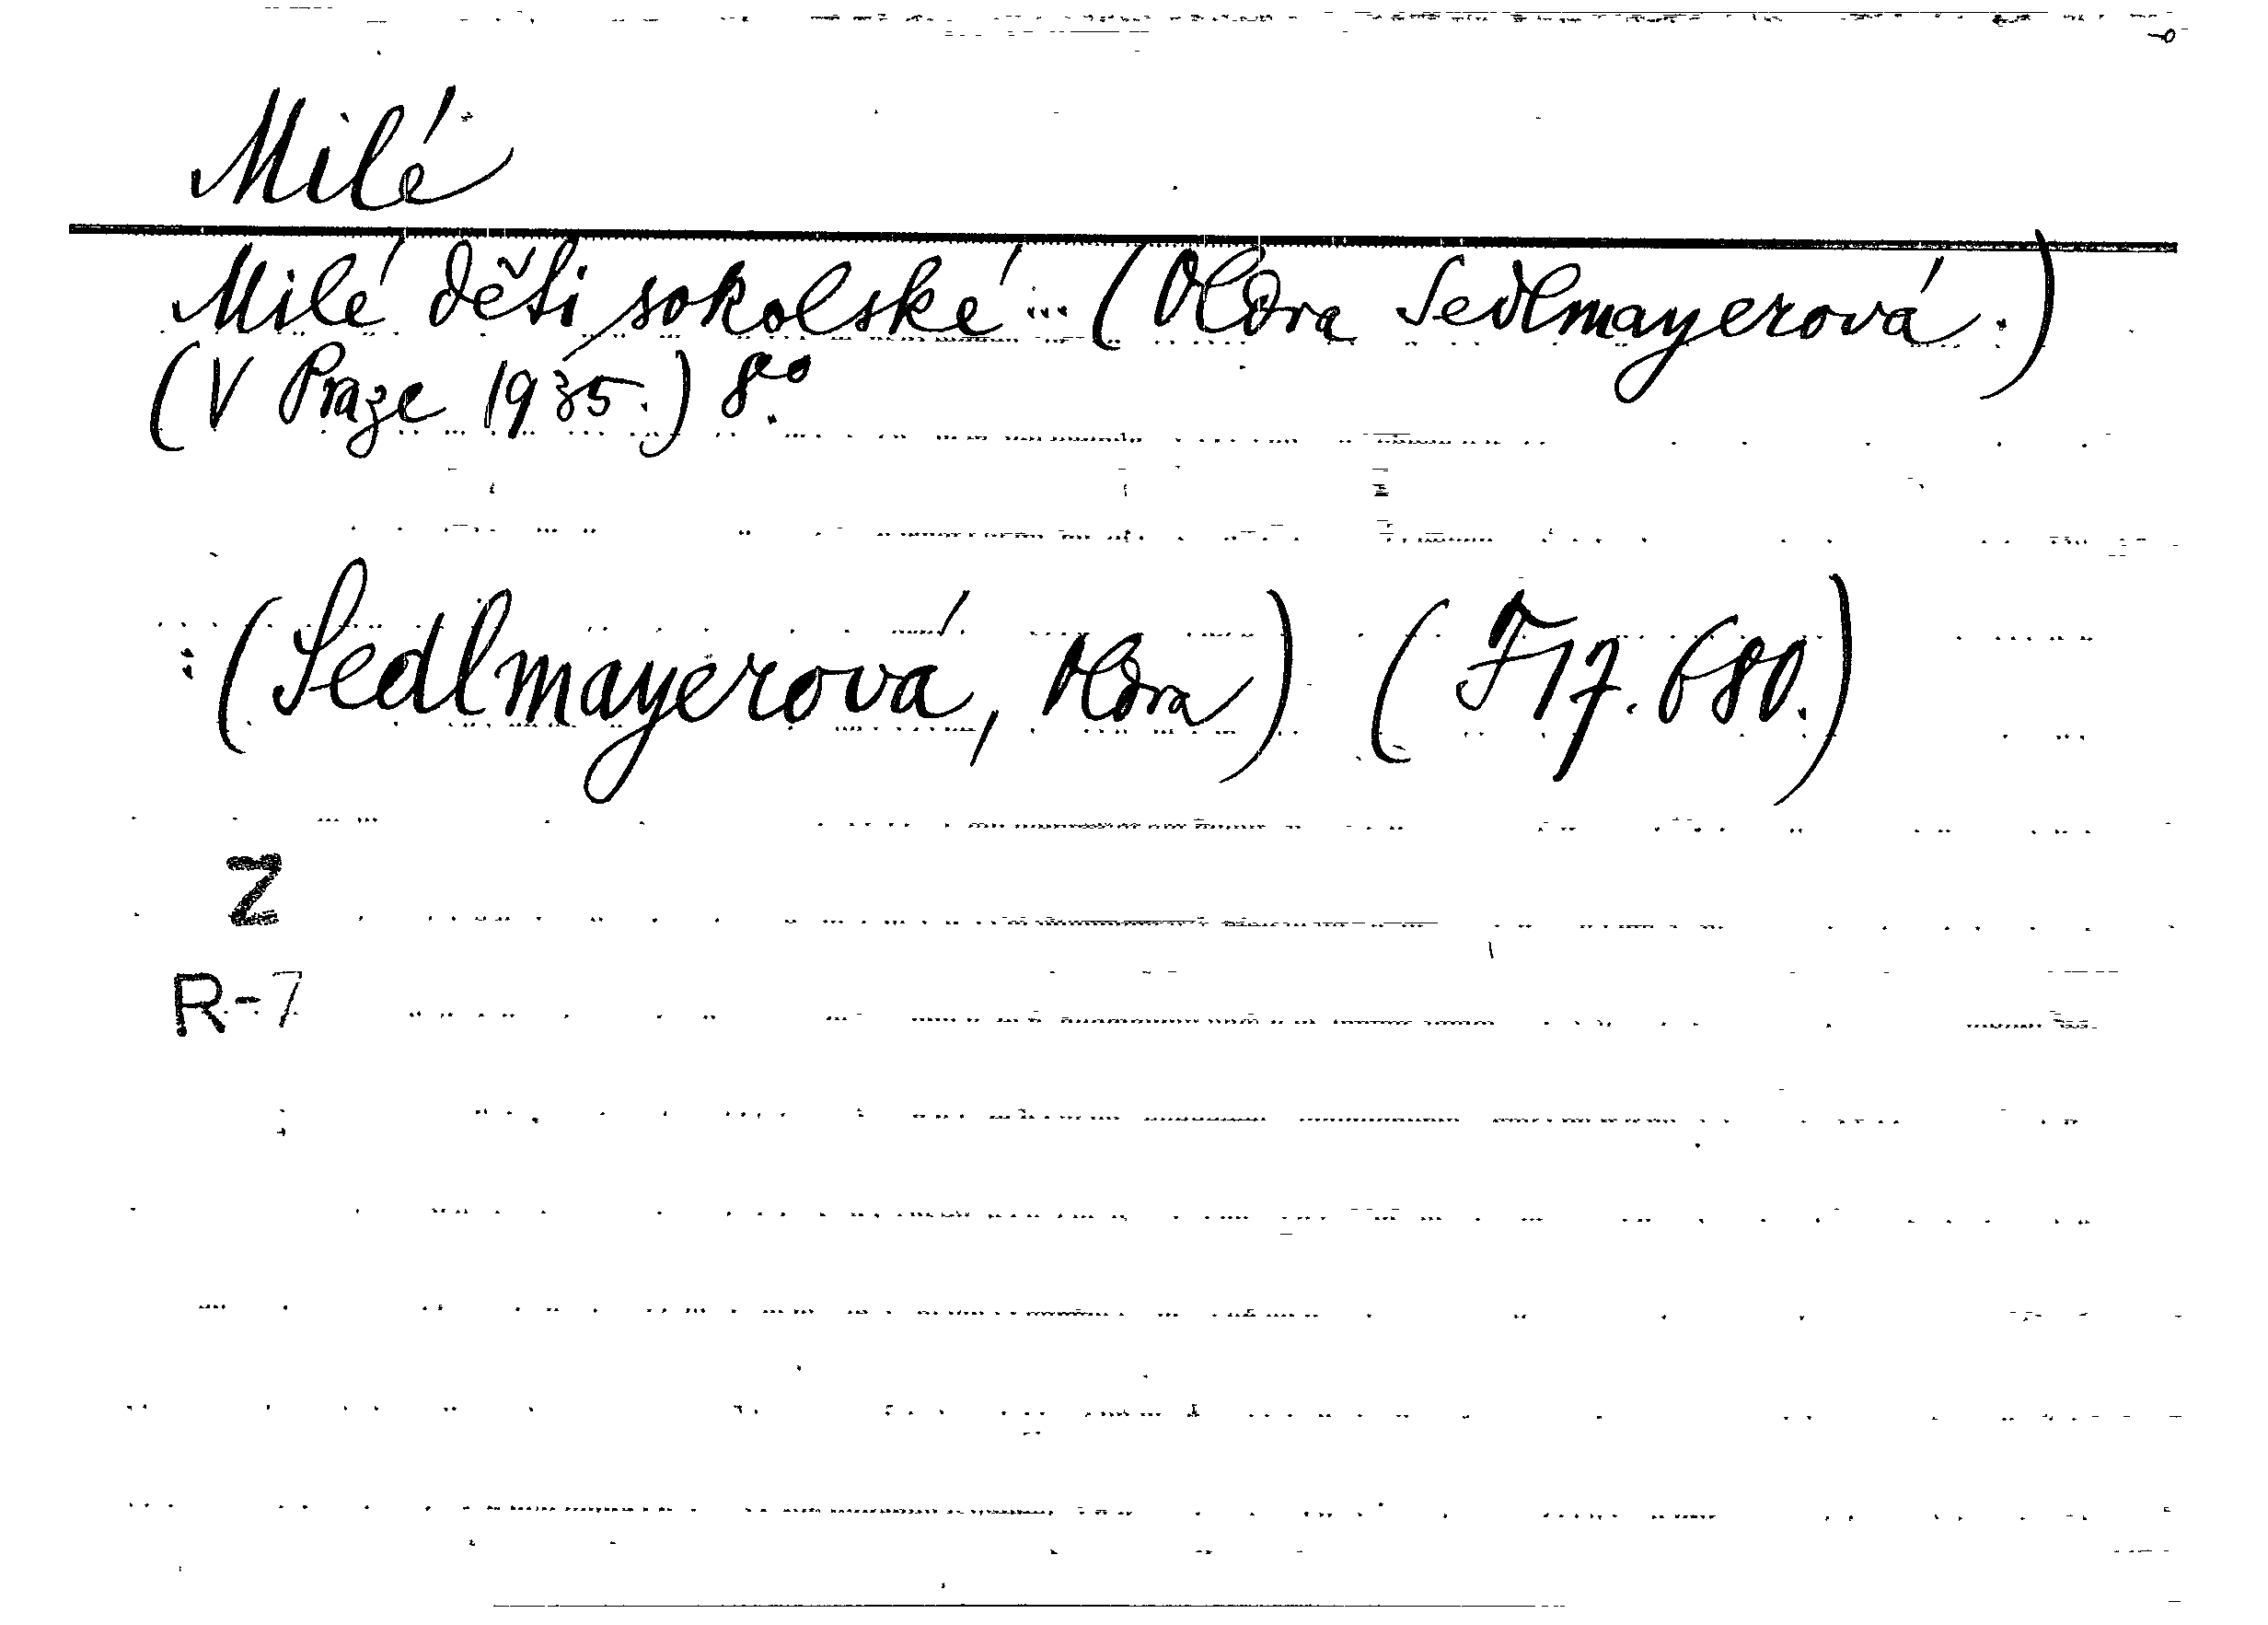 Milé
Milé děti sokolské ... (Oldra Sedlmayerová.)
(V Praze 1935.) 8º.
(Sedlmayerová, Oldra) (F 17.680.)
Z
R-7